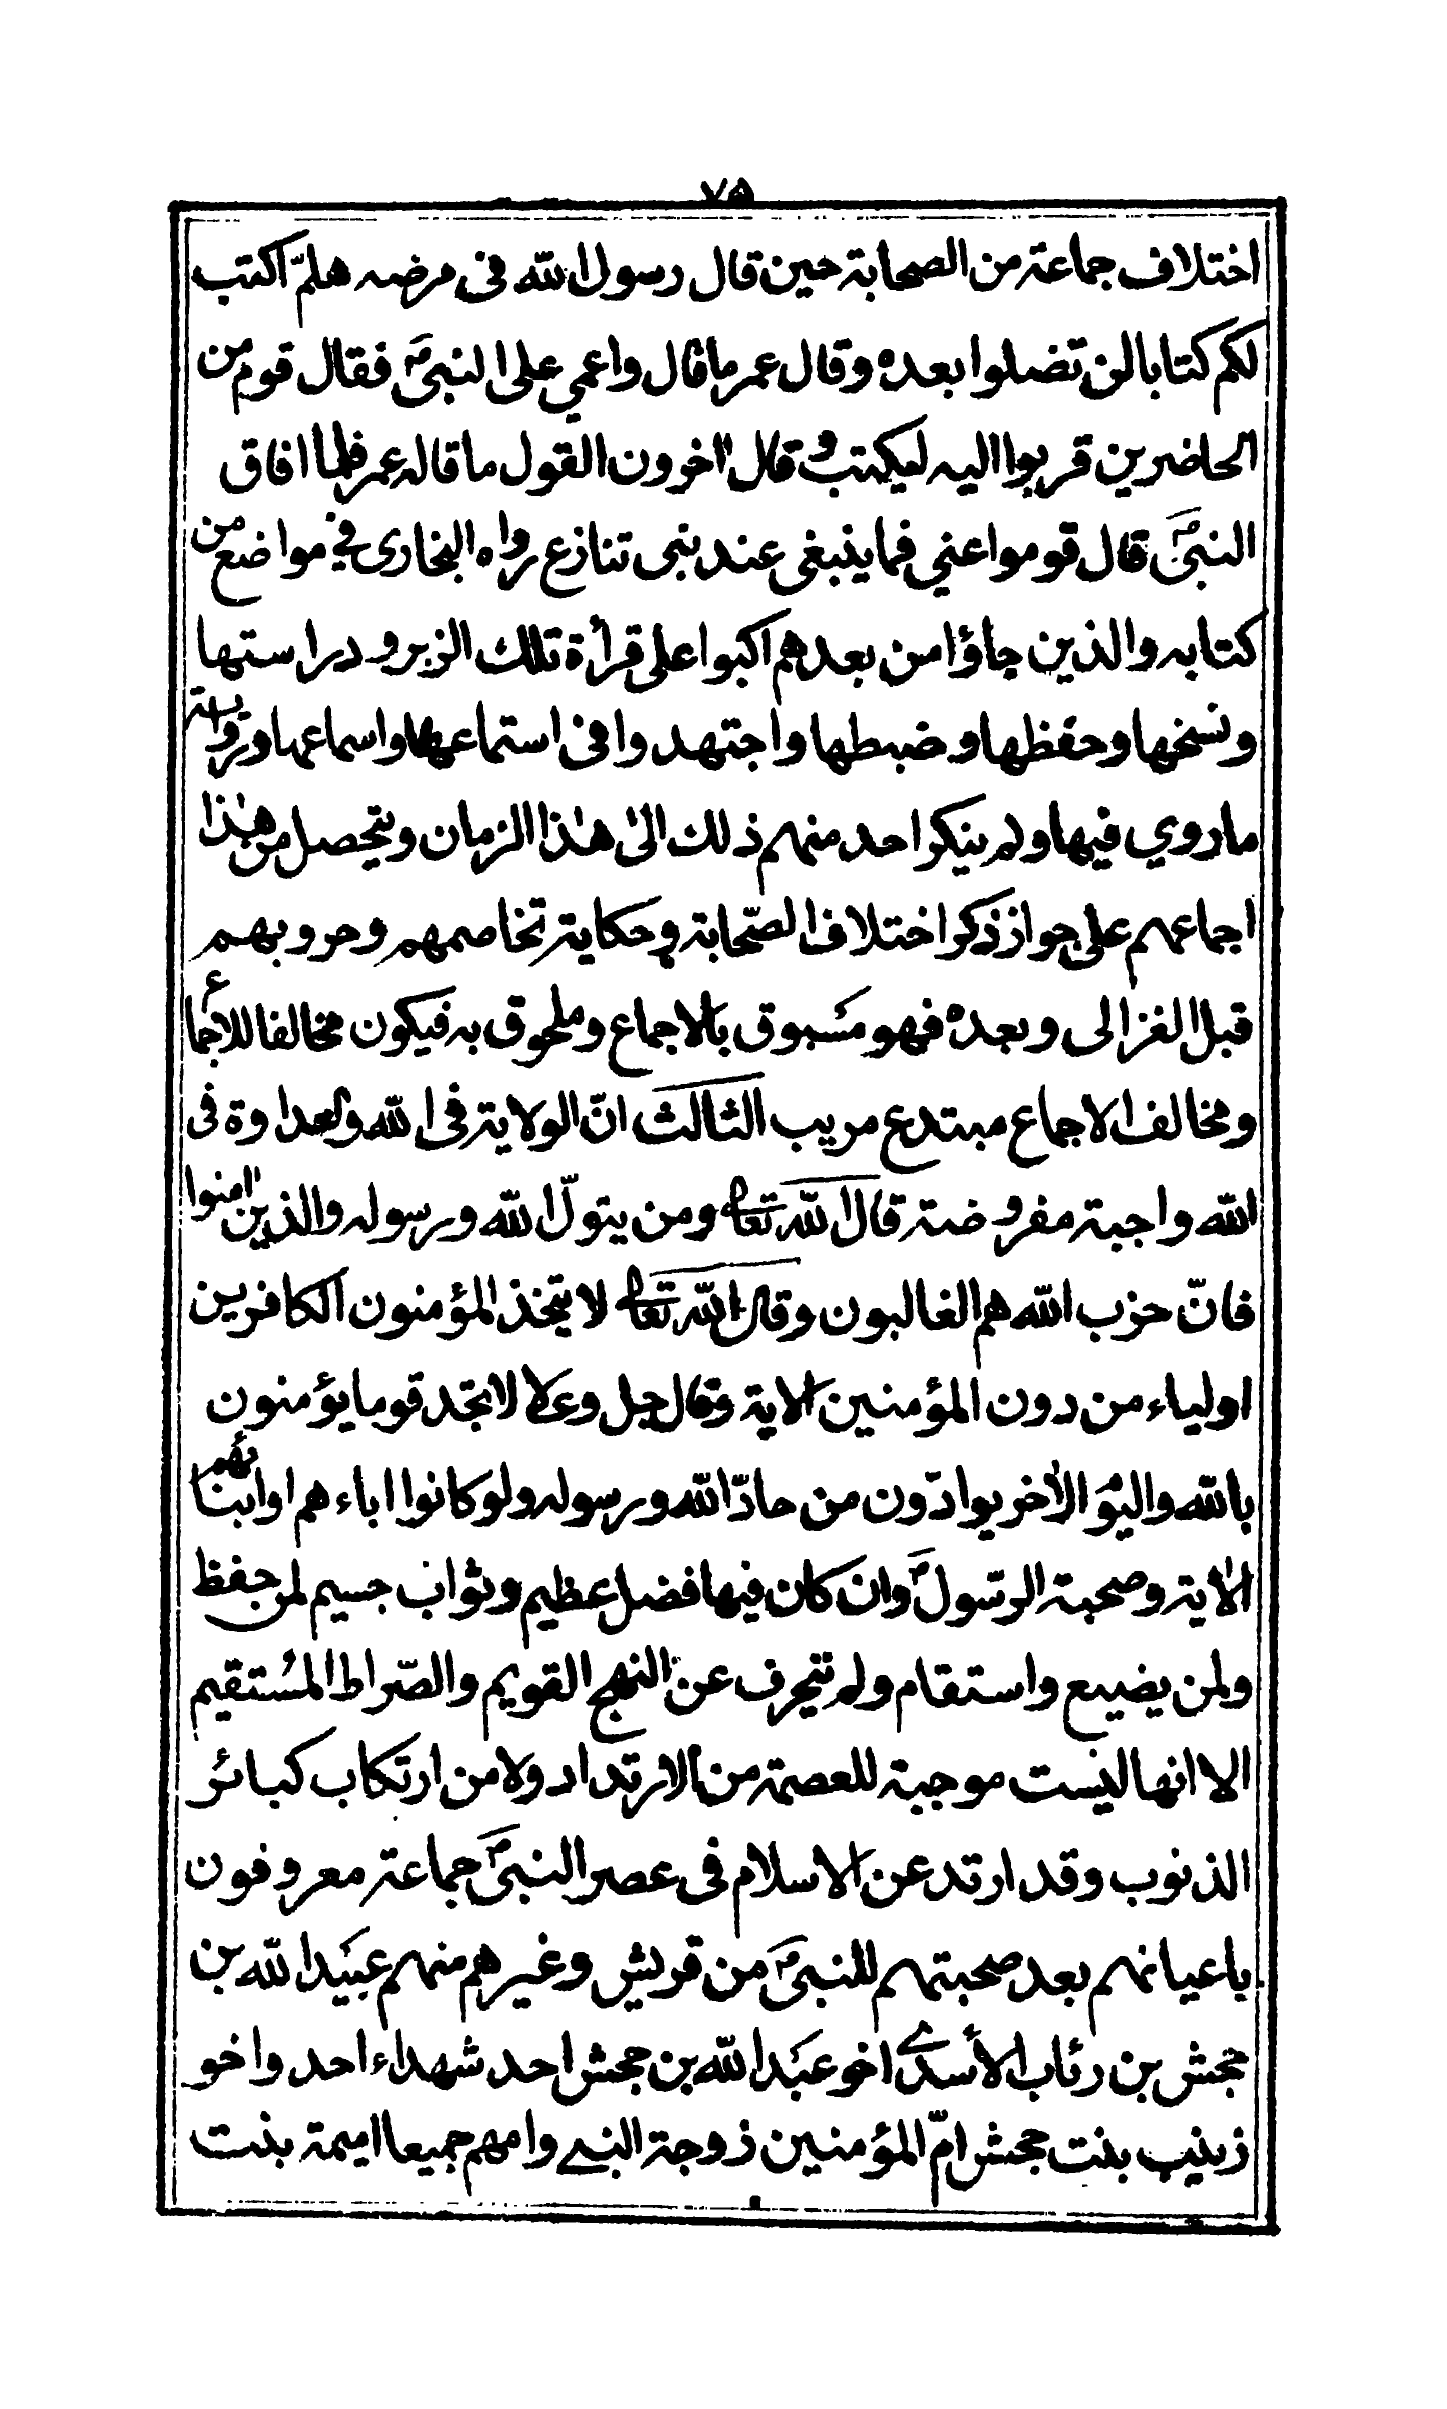 ٧٥
اختلاف جماعة من الصحابة حين قال رسول الله فى مرضه هلمّ اكتب
لكم كتابا لن تضلوا بعده وقال عمر ما قال واعمي على النبىّ فقال قوم من
الحاضرين قربوا اليه ليكتب وقال اخرون القول ما قاله عمر فلما افاق
النبىّ قال قوموا عني فما ينبغى عند نبى تنازع رواه البخارى في مواضع من
كتابه والذين جاؤا من بعدهم اكبوا على قرأة تلك الزبر و دراستها
ونسخها وحفظها و ضبطها واجتهدوا فى استماعها واسماعها و
ما روي فيها ولم ينكر احد منهم ذلك الى هذا الزمان ويتحصل من هذا
اجماعهم على جواز ذكر اختلاف الصّحابة وحكاية تخاصمهم وحروبهم
قبل الغزالى وبعده فهو مسبوق بالاجماع وملحوق به فيكون مخالفا للاجماع
ومخالف الاجماع مبتدع مريب الثالث انّ الولاية فى الله والعداوة فى
الله واجبة مفروضة قال الله تعالى ومن يتولّ الله ورسوله والذين امنوا
فانّ حزب الله هم الغالبون وقال الله تعالى لا يتخذ المؤمنون الكافرين
اولياء من دون المؤمنين الاية وقال جل وعلا لا تجد قوما يؤمنون
بالله واليوم الأخر يوادّون من حادّ الله ورسوله ولو كانوا اباءهم او ابنائهم
الأية وصحبة الرّسولؐ وان كان فيها فضل عظيم وثواب جسيم لمن حفظ
ولمن يضيع واستقام ولم تتحرف عن النهج القويم والصّراط المُستقيم
الا انها ليست موجبة للعصمة من الارتداد ولا من ارتكاب كبائر
الذنوب وقد ارتد عن الاسلام فى عصر النبىّ جماعة معروفون
باعيانهم بعد صحبتهم للنبىّ من قريش وغيرهم منهم عبيد الله بن
جحش بن رئاب الأسدي اخو عبد الله بن جحش احد شهداء احد واخو
زينب بنت جحش امّ المؤمنين زوجة النبي وامهم جميعا اميمة بنت